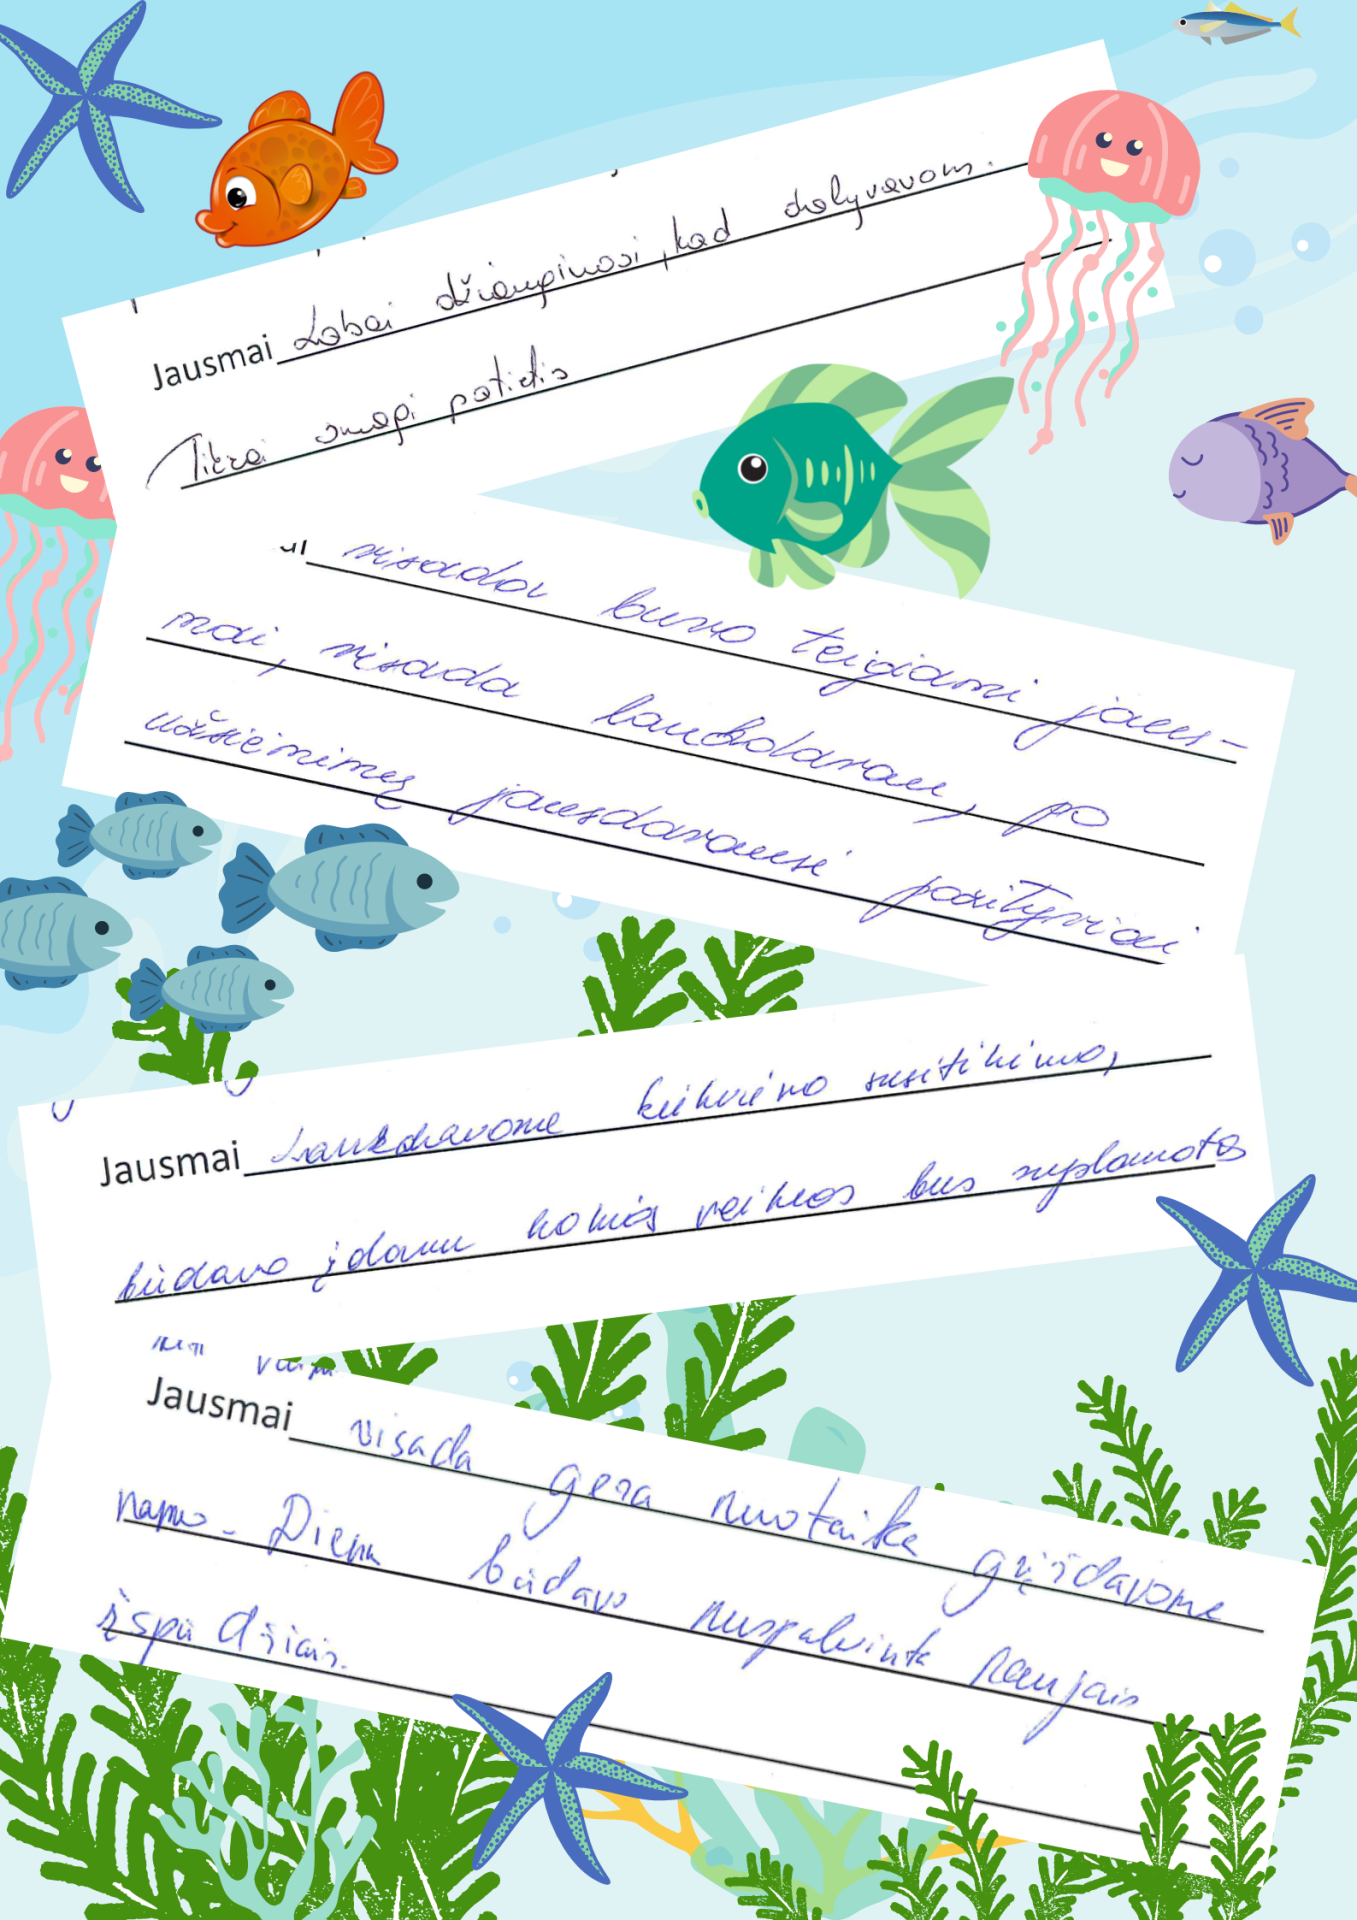 Jausmai Labai džiaugiuosi, kad dalyvavom.
Tikrai smagi patirtis
visada buvo teigiami jaus-
mai, visada laukdavau, po
užsiėmimų jausdavausi pozityviai
Jausmai Laukdavome kiekvieno susitikimo,
būdavo įdomu kokios veiklos bus suplanuotos
Jausmai visada gera nuotaika grįždavome
namo. Diena būdavo nuspalvinta naujais
įspūdžiais.